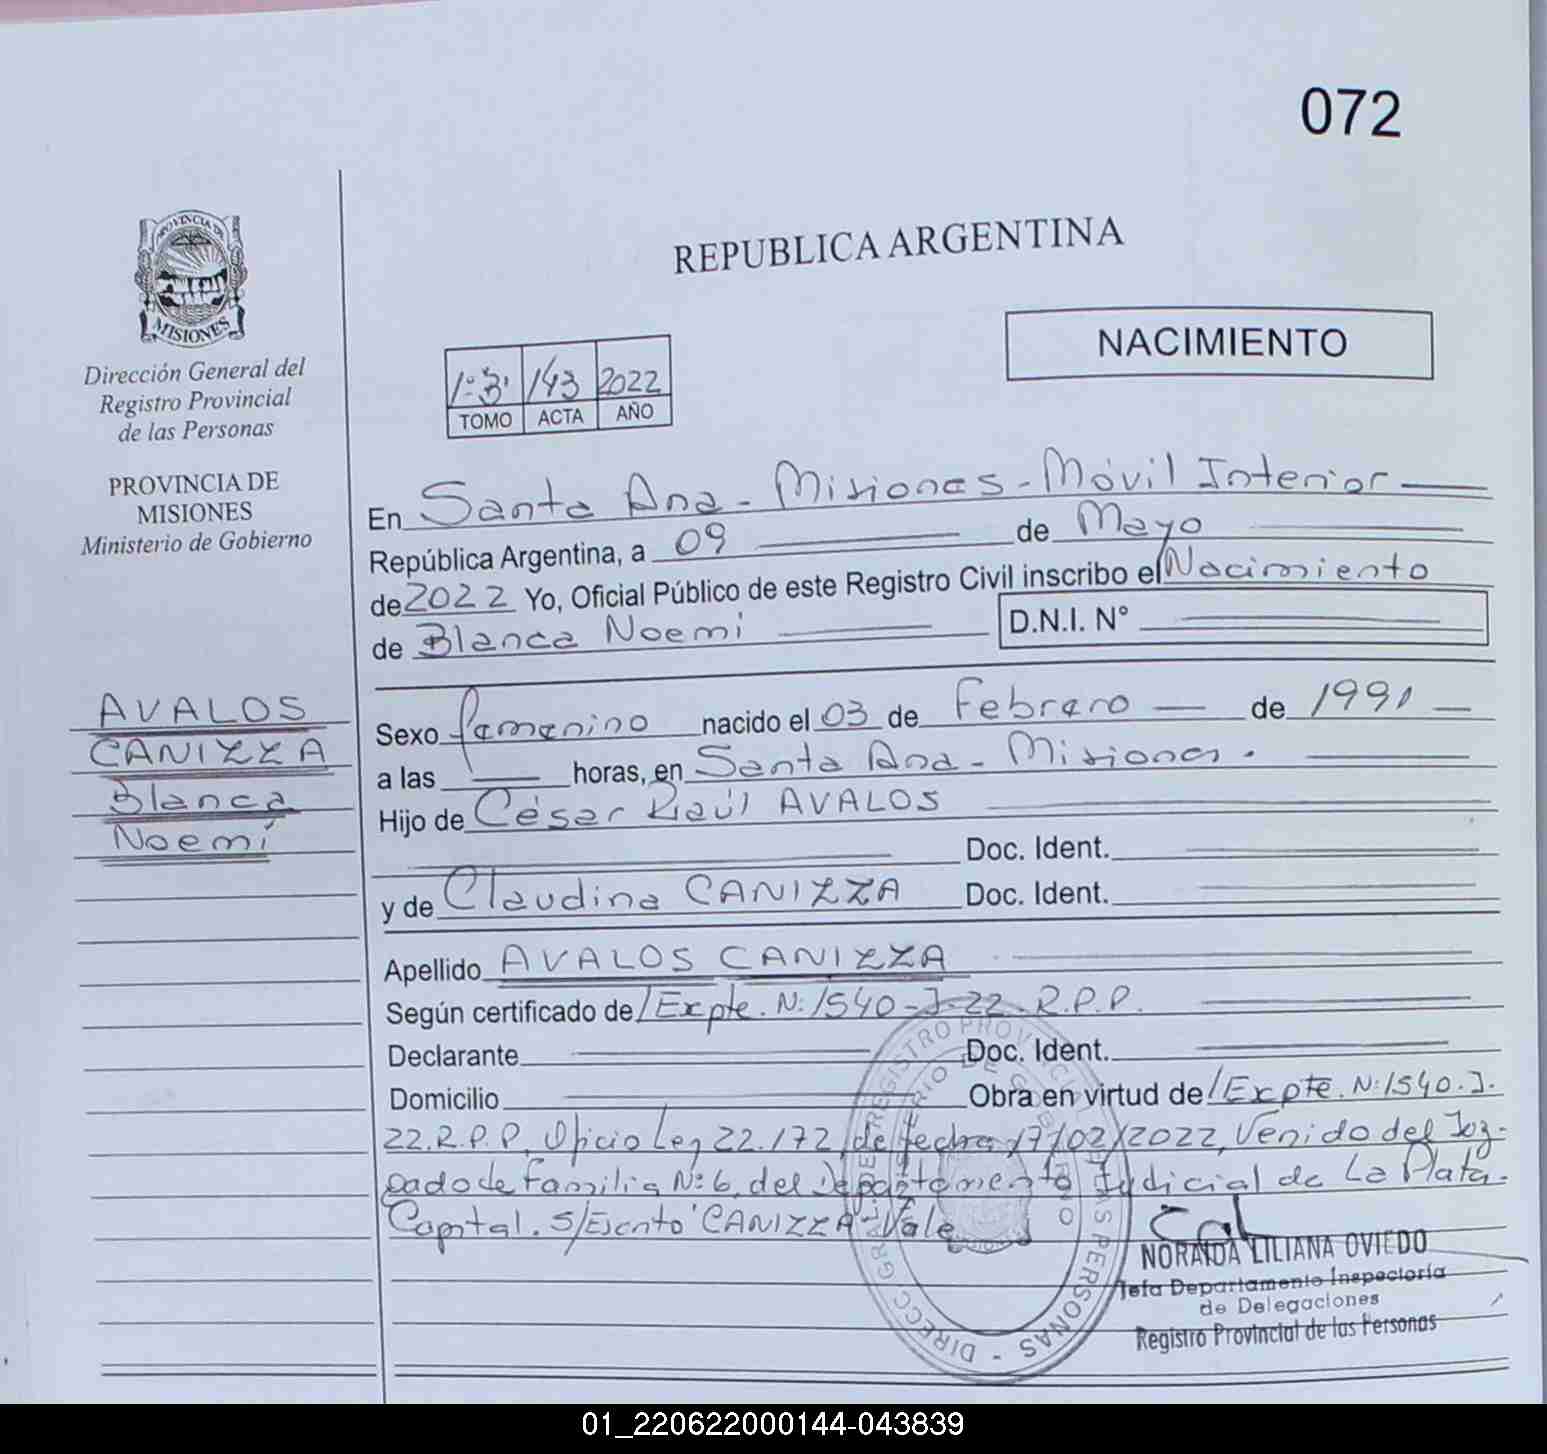 072
PROVINCIA DE
MISIONES
Dirección General del
Registro Provincial
de las Personas
PROVINCIA DE
MISIONES
Ministerio de Gobierno
AVALOS
CANIZZA
Blanca
Noemí
REPUBLICA ARGENTINA
NACIMIENTO
1-3 143 2022
TOMO ACTA AÑO
En Santa Ana - Misiones - Móvil Interior
República Argentina, a 09 de Mayo
de 2022 Yo, Oficial Público de este Registro Civil inscribo el Nacimiento
de Blanca Noemí D.N.I. N°
Sexo femenino nacido el 03 de Febrero de 1991
a las horas, en Santa Ana - Misiones.
Hijo de César Raúl AVALOS
Doc. Ident.
y de Claudina CANIZZA Doc. Ident.
Apellido AVALOS CANIZZA
Según certificado de Expte. N: 1540-J-22-R.P.P.
Declarante Doc. Ident.
Domicilio Obra en virtud de Expte. N: 1540.J.
22.R.P.P. Oficio Ley 22.172, de fecha 17/02/2022, Venido del Juz-
gado de Familia Nº 6, del Departamento Judicial de La Plata.
Capital. S/Escrito "CANIZZA" Vale
DIRECC GRAL. DE REGISTRO PROVINCIAL DE LAS PERSONAS -
MINISTERIO DE GOBIERNO
NORAIDA LILIANA OVIEDO
Jefa Departamento Inspectoría
de Delegaciones
Registro Provincial de las Personas
01_220622000144-043839